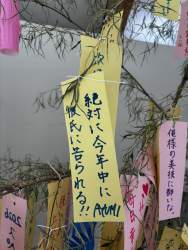 絶対に今年中に
彼氏に告られる!!
AYUMI
俺様の美技に酔いな。